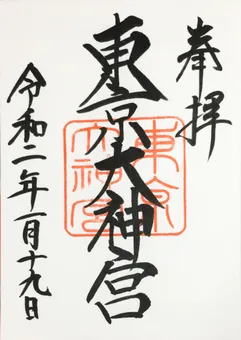 奉拝
東京大神宮
東京大神宮
令和二年一月十九日